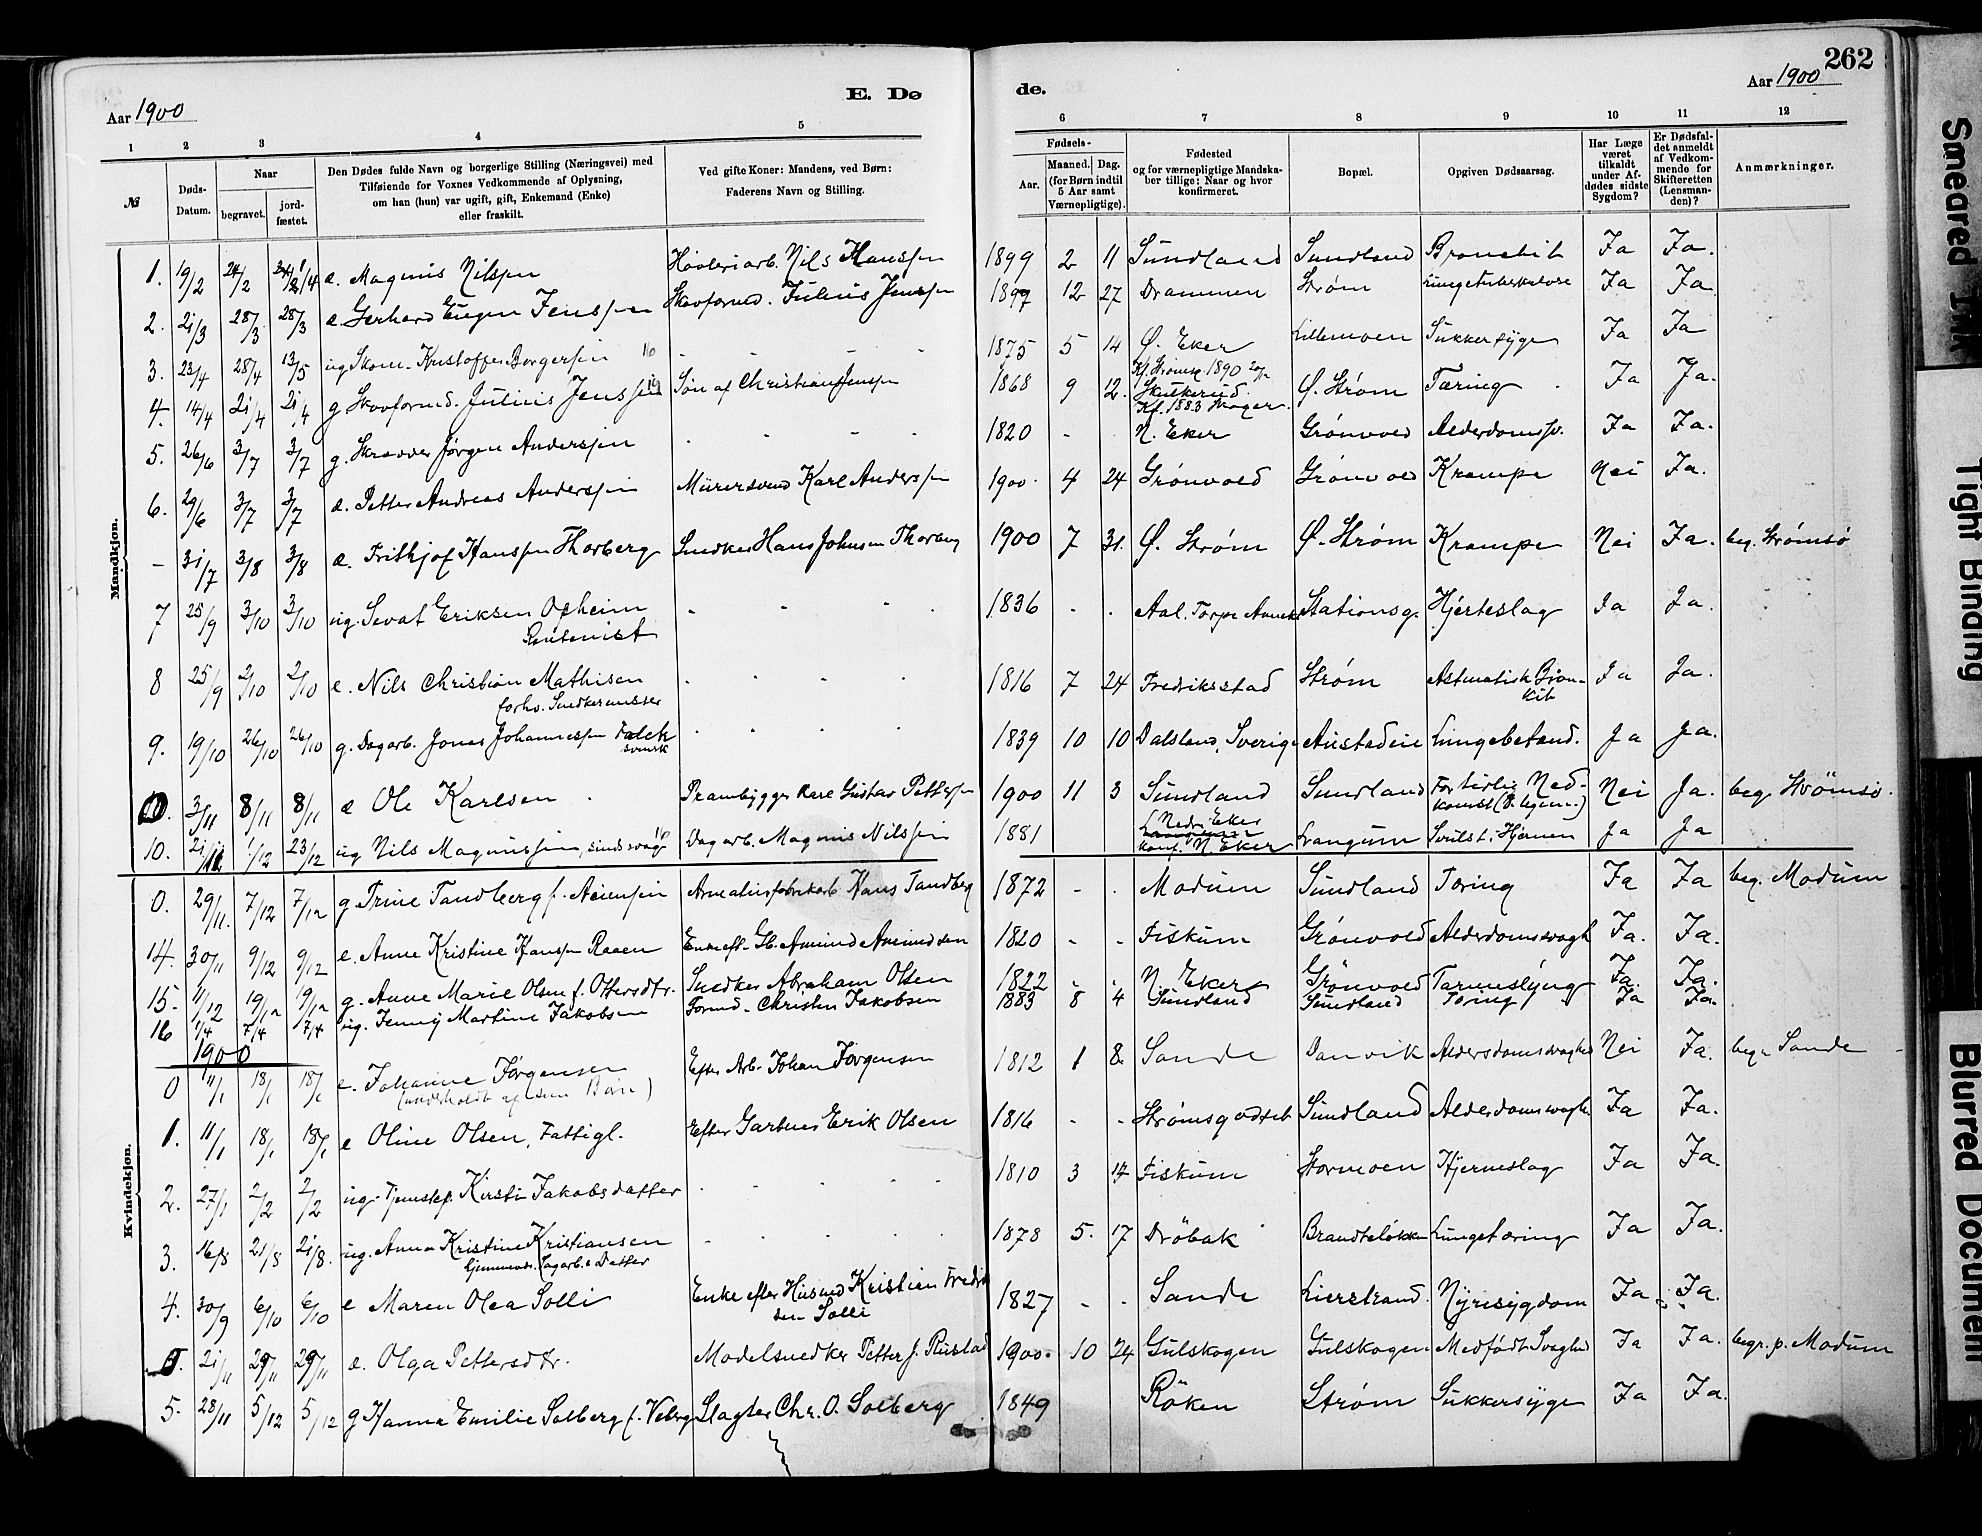 262
Aar 1900
E. Dø
de.
Aar 1900
1 2 3 4 5 6 7 8 9 10 11 12
№
Døds-Datum.
Naar
begravet.
jord-fæstet.
Den Dødes fulde Navn og borgerlige Stilling (Næringsvei) med
Tilføiende for Voxnes Vedkommende af Oplysning,
om han (hun) var ugift, gift, Enkemand (Enke)
eller fraskilt.
Ved gifte Koner: Mandens, ved Børn:
Faderens Navn og Stilling.
Fødsels-
Aar.
Maaned. Dag.
(for Børn indtil
5 Aar samt
Værnepligtige).
Fødested
og for værnepligtige Mandska-
ber tillige: Naar og hvor
konfirmeret.
Bopæl.
Opgiven Dødsaarsag.
Har Læge
været
tilkaldt
under Af-
dødes sidste
Sygdom?
Er Dødsfal-
det anmeldt
af Vedkom-
mende for
Skifteretten
(Lensman-
den)?
Anmærkninger.
Mandkjøn.
1. 19/2 24/2 æ. Magnus Nilssen Høvleriarb. Nils Hanssen 1899 2 11 Sundland Sundland Bronchit Ja Ja.
2. 21/3 28/3 28/3 æ. Gerhard Eugen Jenssen Skovformd. Julius Jenssen 1897 12 27 Drammen Strøm Lungetuberkulose Ja Ja
3. 23/4 28/4 13/5 ug Skom. Kristoffer Borgersen - - - - 1875 5 14 Ø. Eker Lillemoen Sukkersyge Ja Ja
Kf. Strømsg. 1890
4. 14/4 21/4 21/4 g Skovformd. Julius Jenssen Søn af Christian Jenssen 1868 9 12. Skulkerud. Ø. Strøm Tæring Ja Ja.
Kf. 1883 Skoger.
5. 26/6 3/7 3/7 g. Skrædder Jørgen Anderssen - - - - 1820 - - N. Eker Grønvold Alderdomssv. Ja Ja.
6. 29/6 3/7 3/7 æ. Petter Andreas Anderssen Murersvend Karl Anderssen 1900. 4 24 Grønvold Grønvold Krampe Nei Ja.
- 31/7 3/8 3/8 æ. Frithjof Hanssen Thorberg Snedker Hans Johnsen Thorberg 1900 7 31. Ø. Strøm Ø. Strøm Krampe Nei Ja. beg. Strømsø
7 25/9 3/10 3/10 ug. Sevat Eriksen Opheim - - - - 1836 - - Aal. Torpe Stationsg. Hjerteslag Ja Ja.
8 25/9 2/10 2/10 e. Nils Christian Mathisen - - - - 1816 7 24 Fredriksstad Strøm Astmatisk Bron-
forhv. Snedkermester kit Ja Ja.
9. 19/10 26/10 26/10 g. Dagarb. Jonas Johannessen Falck - - - - 1839 10 10 Dalsland, Sverige Austadeie Lungebetænd. Ja Ja.
svensk
0. 3/11 8/11 8/11 æ Ole Karlsen Prambygger Karl Gustav Pettersen 1900 11 3 Sundland Sundland For tidlig Ned-
komst Nei Ja. beg. Strömsø.
10. 21/11 1/12 23/12 ug Nils Magnussen, sindssvag Dagarb. Magnus Nilssen 1881 Nedr. Eker Langum Svulst i Hjernen Ja Ja
konf. N. Eker
Kvindekjøn.
0. 29/11. 7/12 7/12 g Trine Tandberg f. Hans Tandberg 1872 - - Modum Sundland Tæring Ja Ja beg. Modum
14. 30/11 9/12 9/12 e. Anne Kristine Hanssen Raaen Enke eft. Gb. Amund Amundsen 1820 - - Fiskum Grønvold Alderdomssvagh Ja. Ja.
15. 11/12 19/12 19/12 g. Anne Marie Olsen f. Ottersdtr. Snedker Abraham Olsen 1822 - - N. Eker Grönvold Tarmslyng Ja. Ja.
16 1/4 7/4 7/4 ug. Jenny Martine Jakobsen Formd. Christen Jakobsen 1883 8 4 Sundland Sundland Tæring Ja Ja.
1900
0 11/1 18/1 18/1 e. Johanne Jørgensen Efter Arb. Johan Jørgensen 1812 1 8 Sande Danvik Aldersdomssvaghed Nei Ja. begr Sande
(underholdt af sine Børn)
1. 11/1 18/1 18/1 e Oline Olsen, Fattigl. Efter Garbner Erik Olsen 1816 - - Strømsgodset Sundland Alderdomssvagh. Ja Ja.
2. 27/1 2/2 2/2 ug. Tjenestep. Kirsti Jakobsdatter - - - - 1810 3 14 Fiskum Stormoen Hjerneslag Ja Ja.
3. 16/8 21/8 21/8. ug. Anna Kristine Kristiansen - - - - 1878 5. 17 Dröbak Brandteløkken Lungetæring Ja Ja.
hjemmev. Dagarb.s Datter
4. 30/9 6/10 6/10 e Maren Olea Solli Enke efter Husmd Kristian Fredrik 1827 - - Sande Lierstrand. Nyresygdom Ja Ja.
sen Solli
0. 21/11 29/11 29/11 æ. Olga Pettersdtr. Modelsnedker Petter J. Rustad 1900. 10 24 Gulskogen Gulskogen Medfødt Svaghed Ja Ja. begr. p. Modum
5. 28/11 5/12 5/12 g Hanna Emilie Solberg f. Slagter Chr. O. Solberg 1849 Röken Strøm Sukkersyge Ja Ja.
Smeared Ink
Tight Binding
Blurred Document